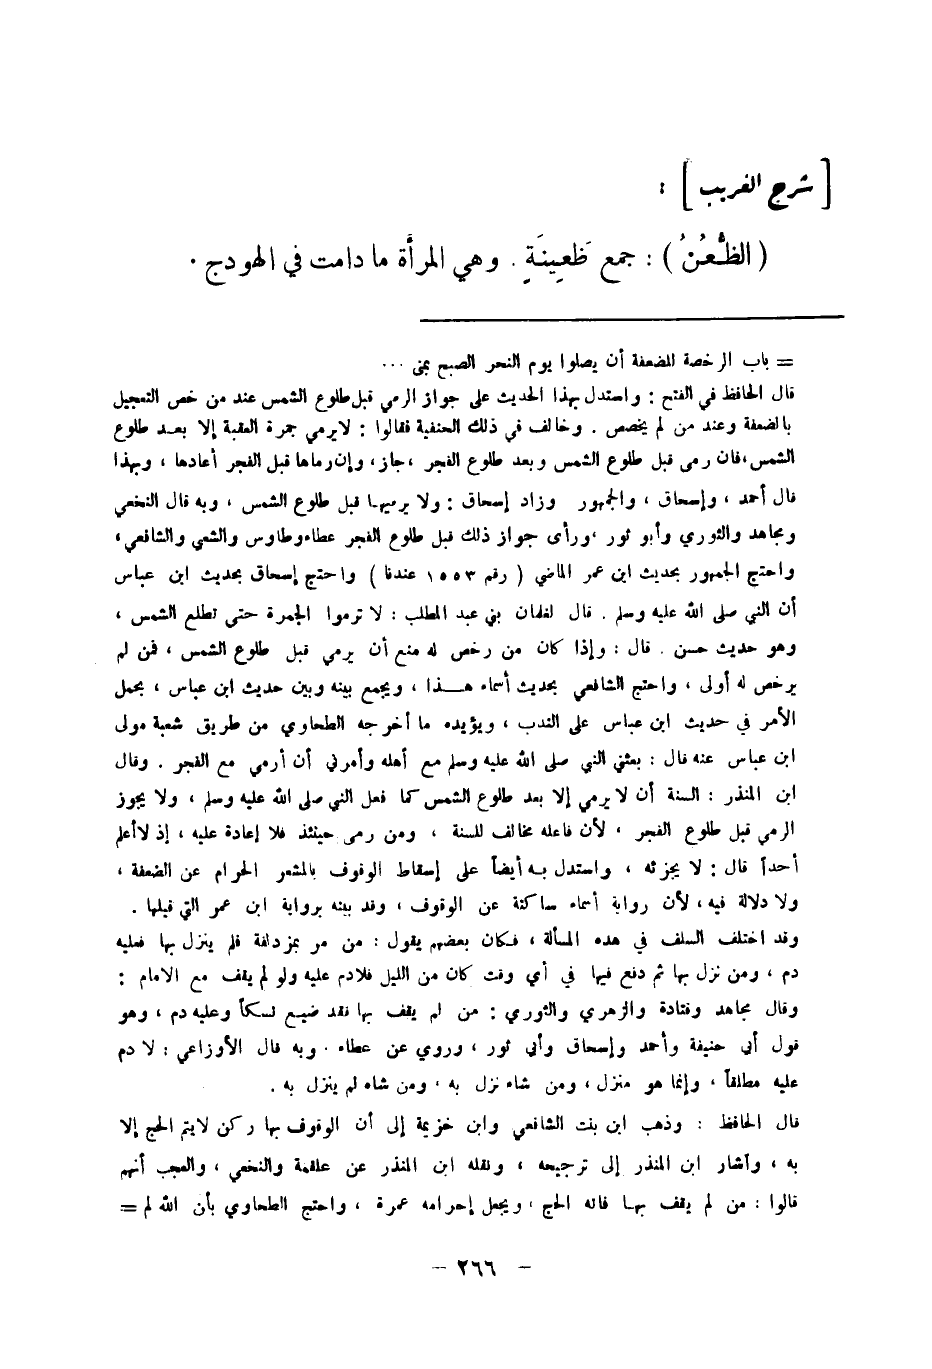 [ شرح الغريب ] :
( الظُّعُنُ ) : جمع ظَعِينَةٍ . وهي المرأَة ما دامت في الهودج .
= باب الرخصة للضعفة أن يصلوا يوم النحر الصبح بمنى ...
قال الحافظ في الفتح : واستدل بهذا الحديث على جواز الرمي قبل طلوع الشمس عند من خص التعجيل
بالضعفة وعند من لم يخصص . وخالف في ذلك الحنفية فقالوا : لايرمي جمرة العقبة إلا بعد طلوع
الشمس، فان رمى قبل طلوع الشمس وبعد طلوع الفجر ، جاز، وإن رماها قبل الفجر أعادها ، وبهذا
قال أحمد ، وإسحاق ، والجمهور وزاد إسحاق : ولا يرميها قبل طلوع الشمس ، وبه قال النخعي
ومجاهد والثوري وأبو ثور ، ورأى جواز ذلك قبل طلوع الفجر عطاء وطاوس والشعبي والشافعي،
واحتج الجمهور بحديث ابن عمر الماضي ( رقم ١٥٥٣ عندنا ) واحتج إسحاق بحديث ابن عباس
أن النبي صلى الله عليه وسلم . قال لغلمان بني عبد المطلب : لا ترموا الجمرة حتى تطلع الشمس ،
وهو حديث حسن . قال : وإذا كان من رخص له منع أن يرمي قبل طلوع الشمس ، فمن لم
يرخص له أولى ، واحتج الشافعي بحديث أسماء هـذا ، ويجمع بينه وبين حديث ابن عباس ، بحمل
الأمر في حديث ابن عباس على الندب ، ويؤيده ما أخرجه الطحاوي من طريق شعبة مولى
ابن عباس عنه قال : بعثني النبي صلى الله عليه وسلم مع أهله وأمرني أن أرمي مع الفجر . وقال
ابن المنذر : السنة أن لا يرمي إلا بعد طلوع الشمس كما فعل النبي صلى الله عليه وسلم ، ولا يجوز
الرمي قبل طلوع الفجر ، لأن فاعله مخالف للسنة ، ومن رمى حينئذ فلا إعادة عليه ، إذ لاأعلم
أحداً قال : لا يجزئه ، واستدل بـه أيضاً على إسقاط الوقوف بالمشعر الحرام عن الضعفة ،
ولا دلالة فيه ، لأن رواية أسماء ساكتة عن الوقوف ، وقد بينه برواية ابن عمر التي قبلها .
وقد اختلف السلف في هذه المسألة ، فكان بعضهم يقول : من مر بمزدلفة فلم ينزل بها فعليه
دم ، ومن نزل بها ثم دفع فيها في أي وقت كان من الليل فلادم عليه ولو لم يقف مع الامام :
وقال مجاهد وقتادة والزهري والثوري : من لم يقف بها فقد ضيـع نسكاً وعليه دم ، وهو
قول أبي حنيفة وأحمد وإسحاق وأبي ثور ، وروي عن عطاء . وبه قال الأوزاعي : لا دم
عليه مطلقاً ، وإنما هو منزل ، ومن شاء نزل به ، ومن شاء لم ينزل به .
قال الحافظ : وذهب ابن بنت الشافعي وابن خزيمة إلى أن الوقوف بها ركن لايتم الحج إلا
به ، وأشار ابن المنذر إلى ترجيحه ، ونقله ابن المنذر عن علقمة والنخعي ، والعجب أنهم
قالوا : من لم يقف بهـا فاته الحج ، ويجعل إحرامه عمرة ، واحتج الطحاوي بأن الله لم =
- ٢٦٦ -